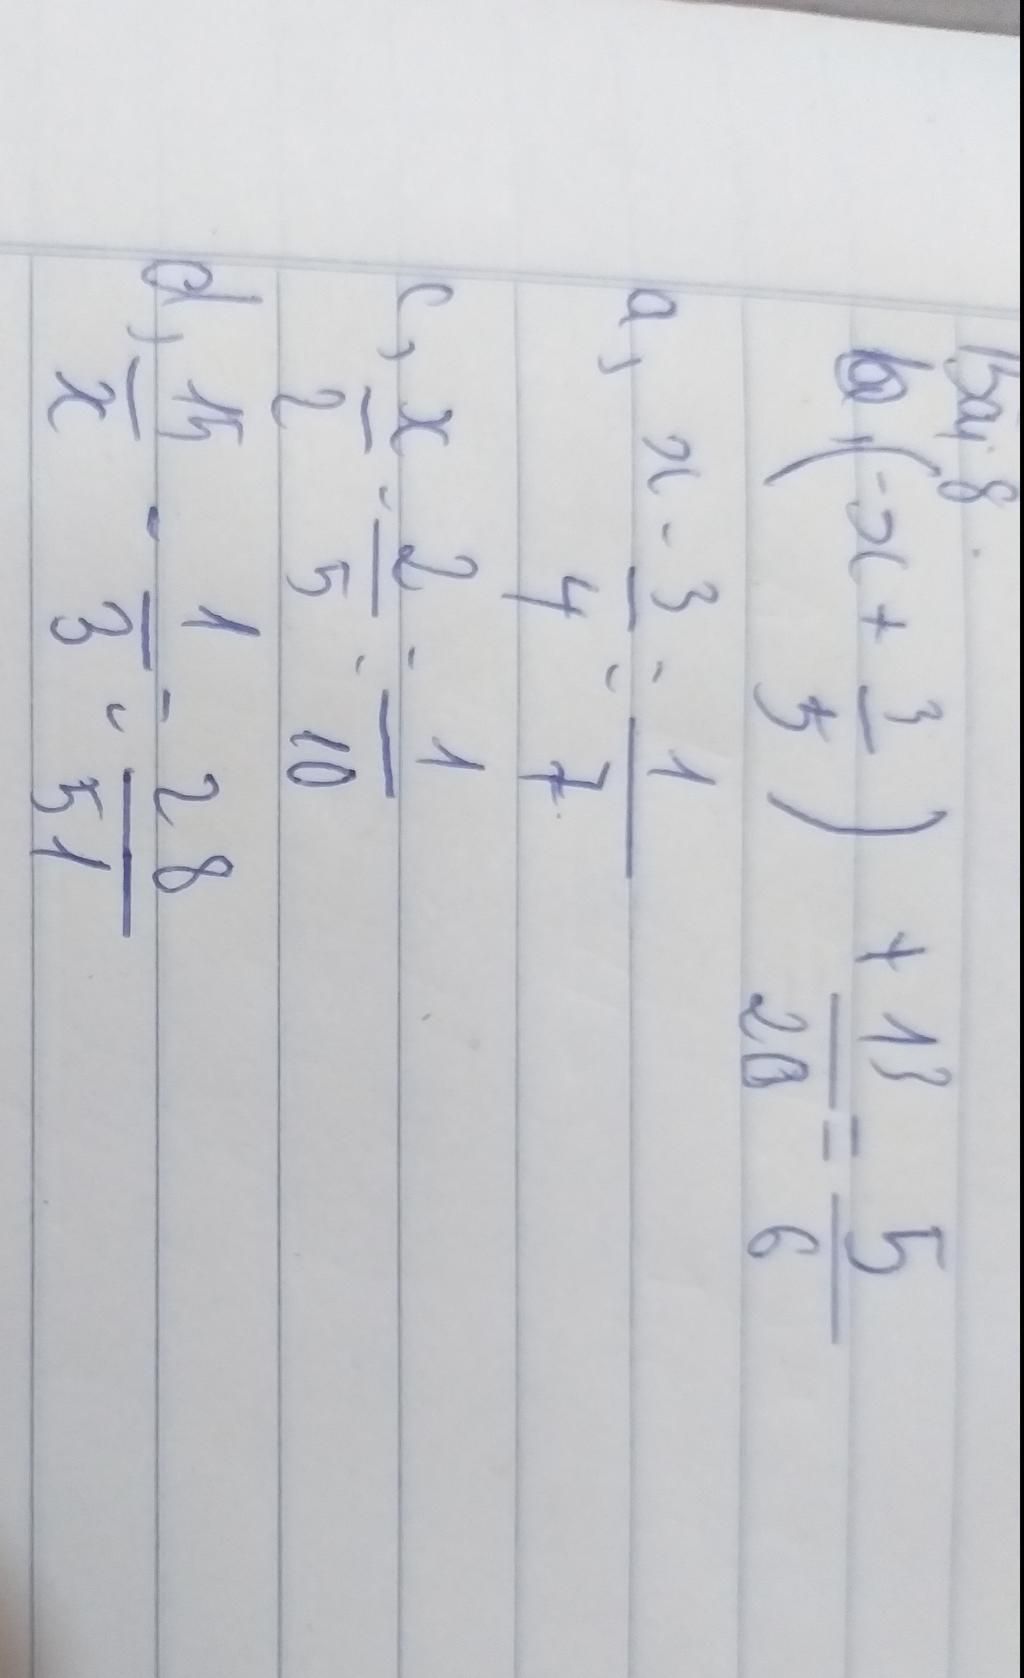 Bài 8
b, (-x + 3/5) + 13/20 = 5/6
a, x - 3/4 = 1/7
c, x/2 - 2/5 = 1/10
d, 15/x - 1/3 = 28/51